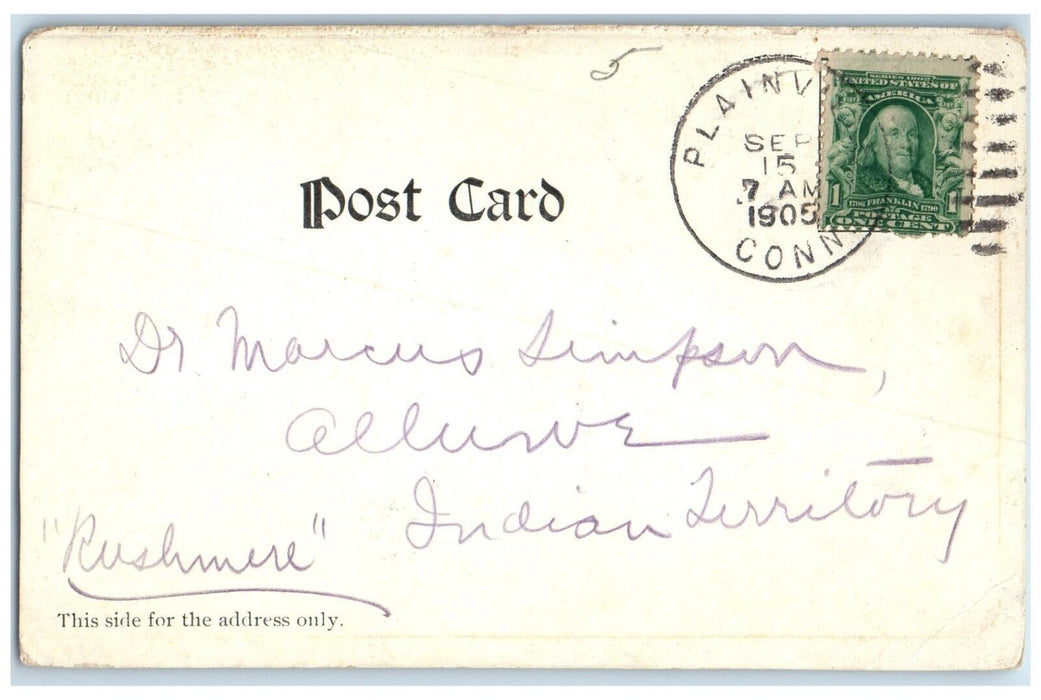 5
PLAINV
SEP
15
7 AM
1905
CONN.
SERIES 1902
UNITED STATES OF
AMERICA
1 1
1706 FRANKLIN 1790
POSTAGE
ONE CENT
Post Card
Dr Marcus Simpson,
Alluwe
Indian Territory
"Rushmere"
This side for the address only.